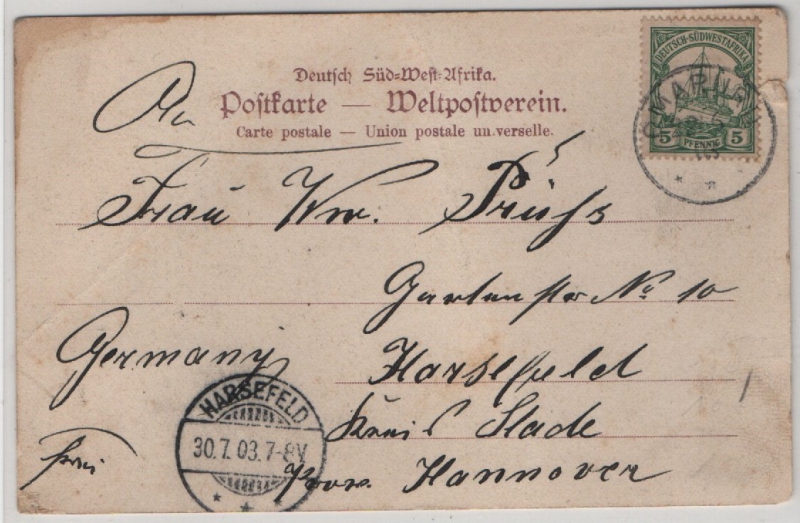 Deutsch Süd-West-Afrika.
Postkarte — Weltpostverein.
Carte postale — Union postale un.verselle.
DEUTSCH-SÜDWESTAFRIKA
5 PFENNIG 5
An
Frau Ww. Prüss
Gartenstr No 10
Germany
Harsefeld
Kreis Stade
frei
Prov. Hannover
HARSEFELD
30.7.03.7-8V.